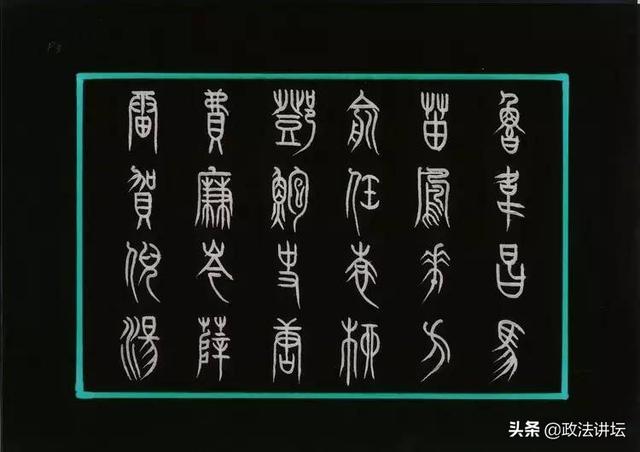 魯韋昌馬
苗鳳花方
俞任袁柳
酆鮑史唐
費廉岑薛
雷賀倪湯
头条 @政法讲坛